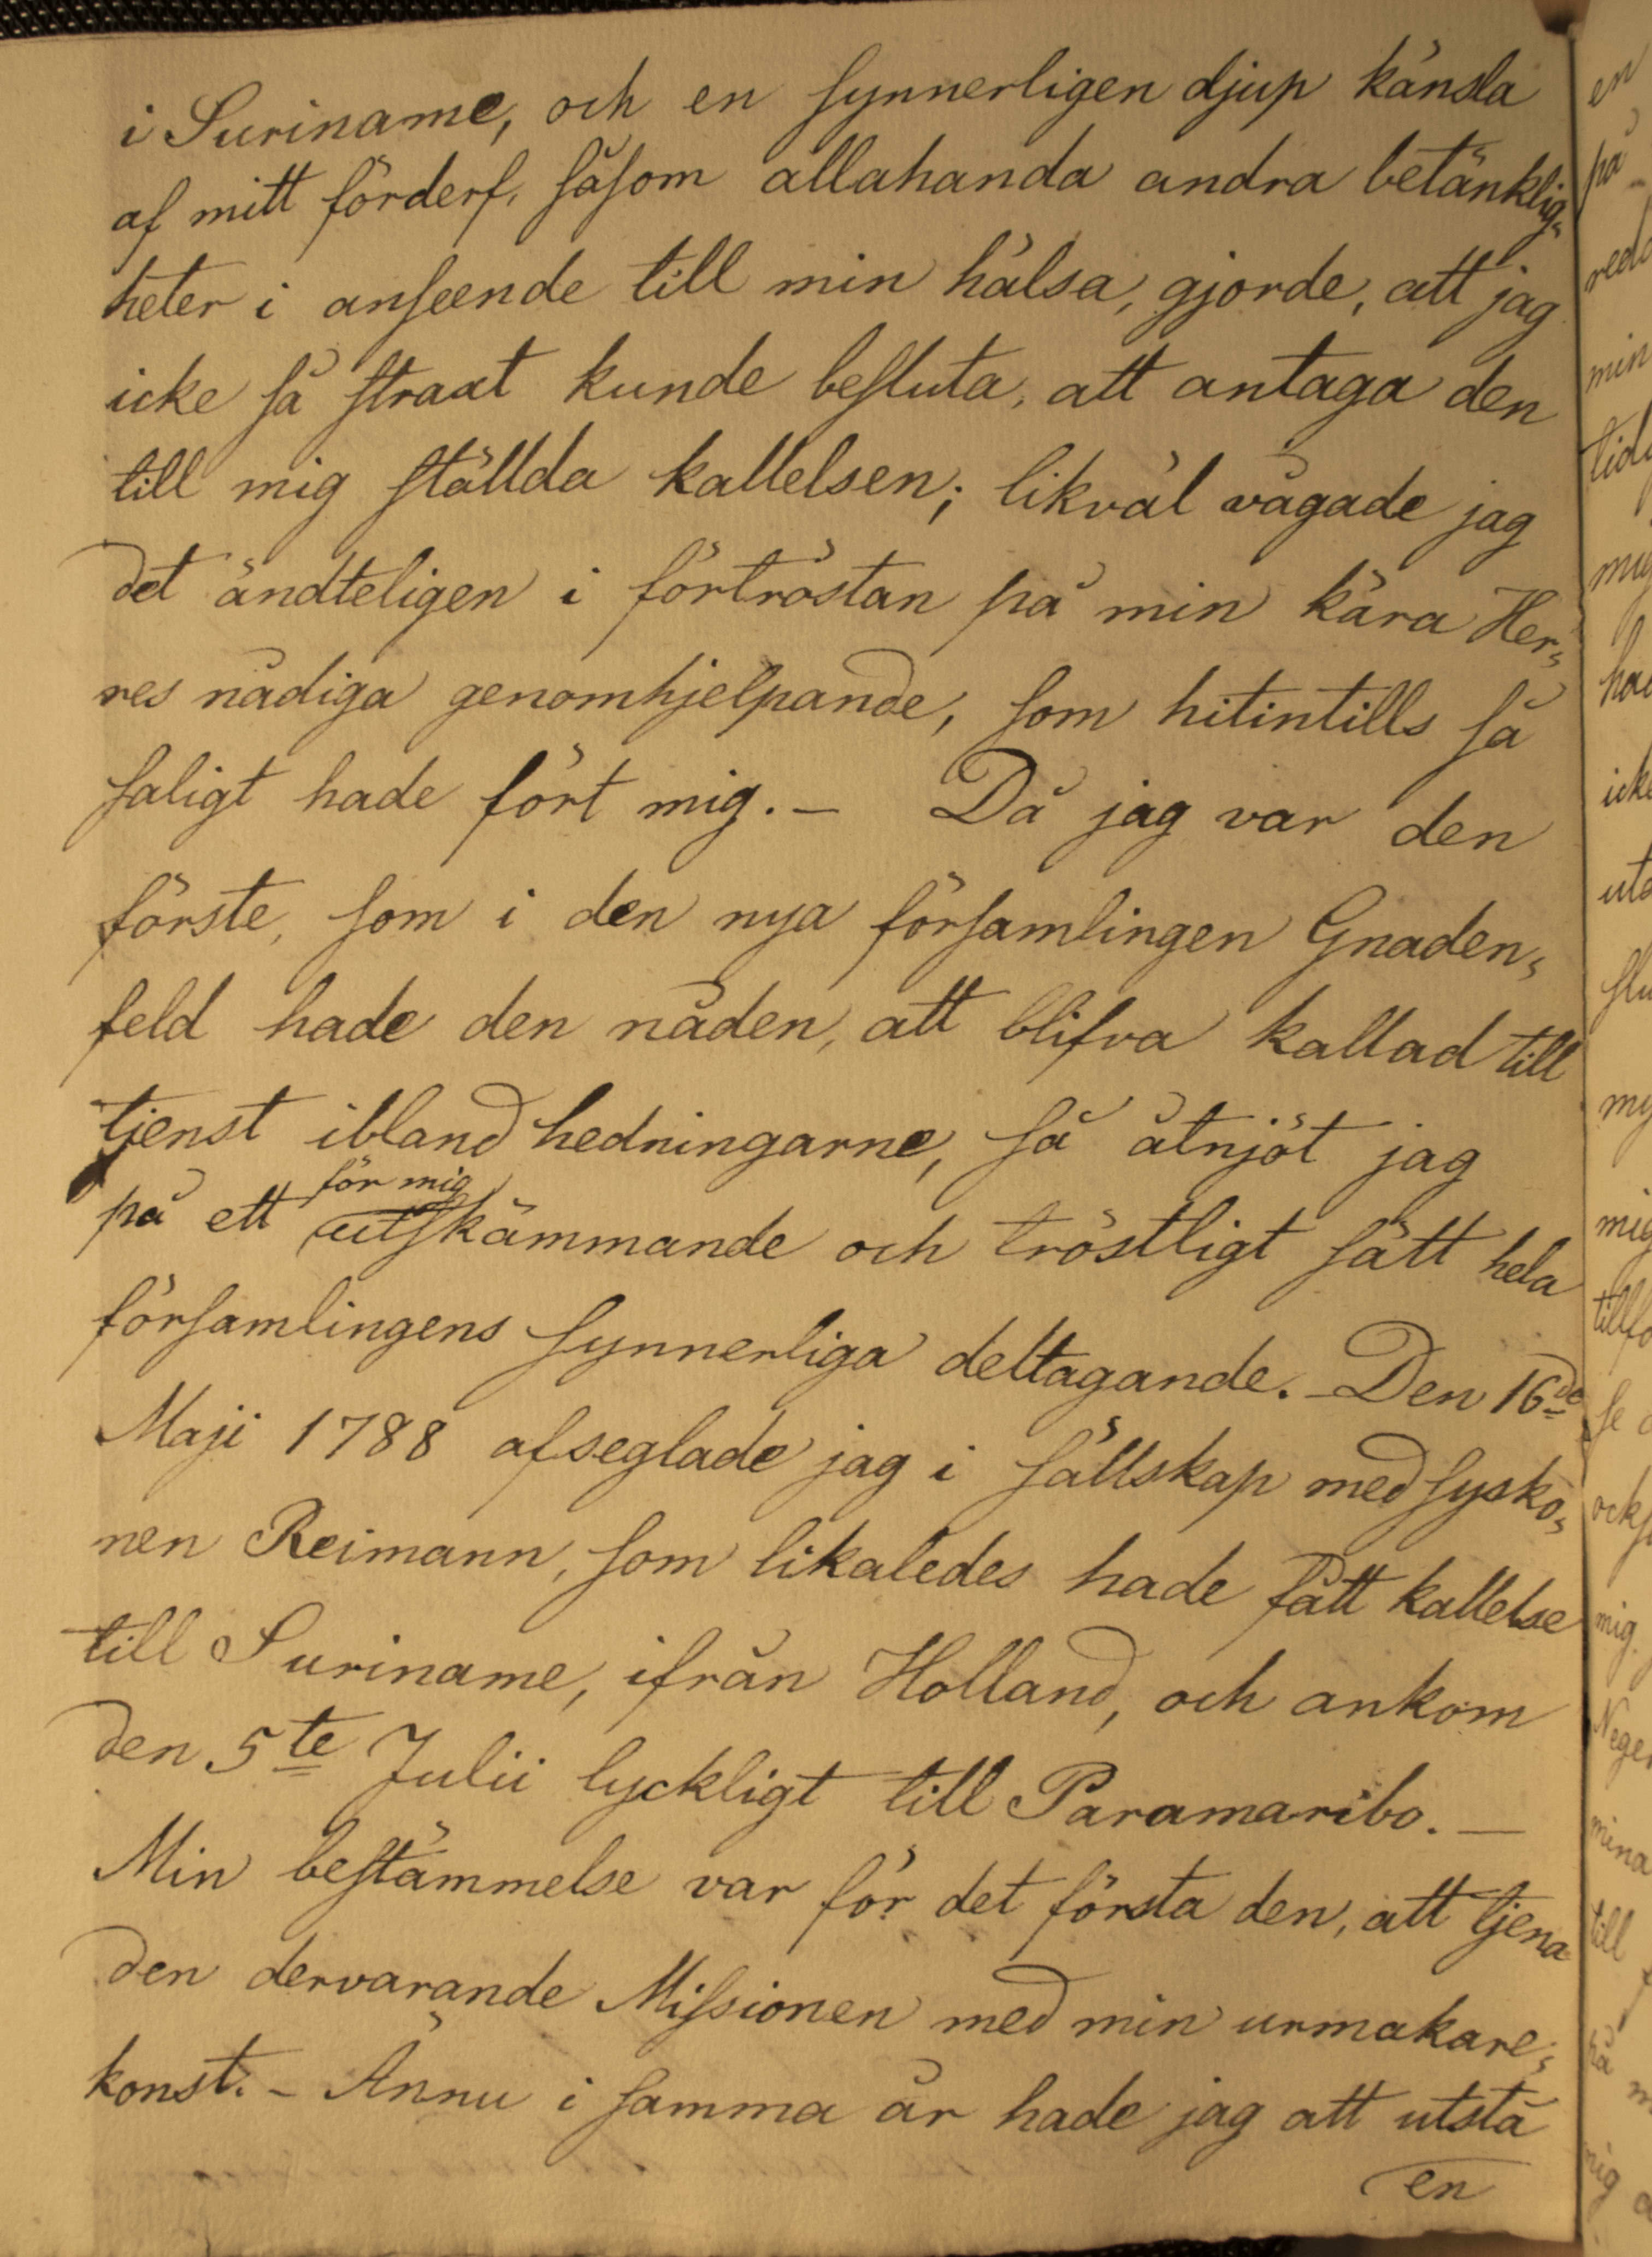 i Suriname, och en synnerligen djup känsla
af mitt förderf, såsom allahanda andra betänklig,
heter i anseende till min hälsa, gjorde, att jag
icke så straxt kunde besluta, att antaga den
till mig ställda kallelsen; likväl vågade jag
det ändteligen i förtröstan på min kära Her,
res nådiga genomhjelpande, som hitintills så
saligt hade fört mig. – Då jag var den
förste, som i den nya församlingen Gnaden,
feld hade den nåden, att blifva kallad till
tjenst ibland hedningarne, så åtnjöt jag
för mig
på ett utskämmande och tröstligt sätt hela
församlingens synnerliga deltagande. – Den 16de
Maji 1788 afseglade jag i sällskap med sysko,
nen Reimann, som likaledes hade fått kallelse
till Suriname, ifrån Holland, och ankom
den 5te Julii lyckligt till Paramaribo. –
Min bestämmelse var för det första den, att tjena
den dervarande Missionen med min urmakare,
konst. – Ännu i samma år hade jag att utstå
en